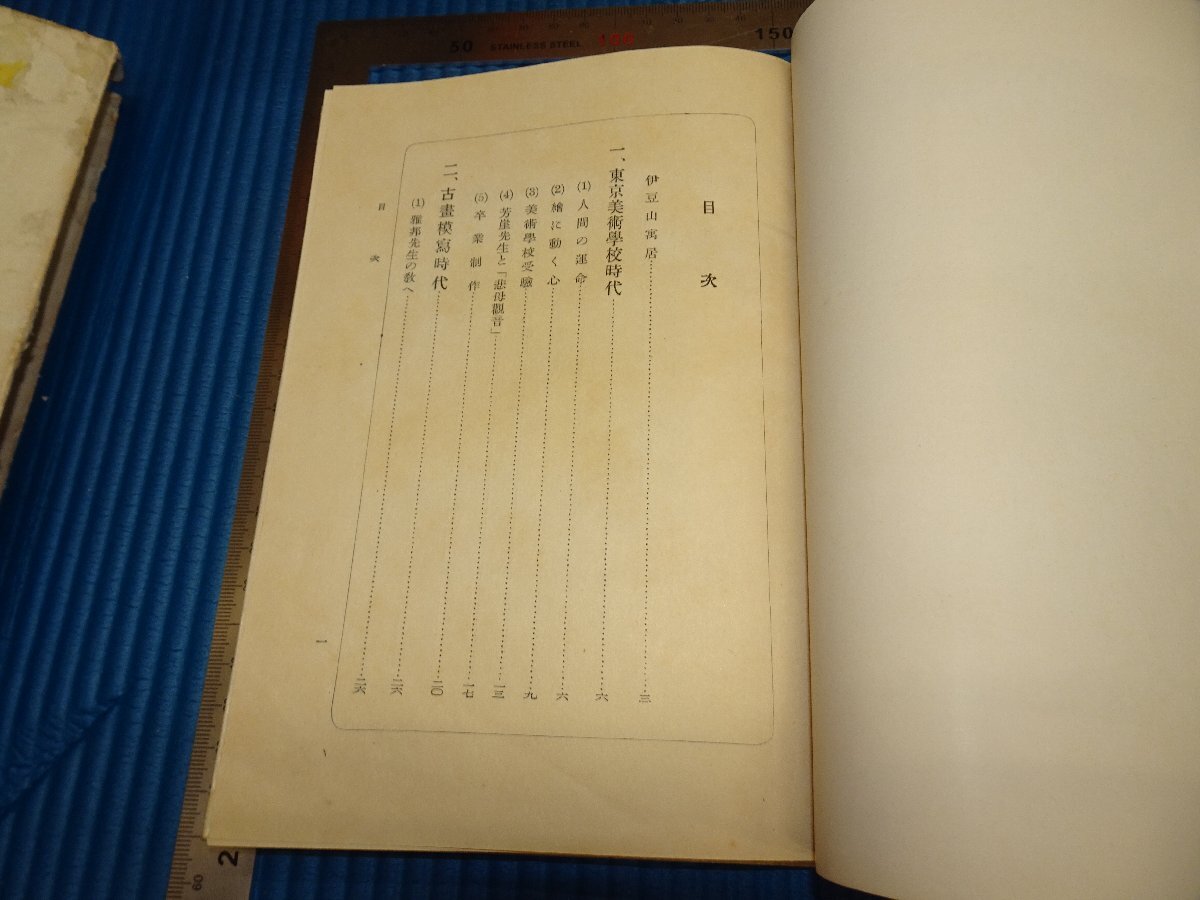 目次
伊豆山寓居…三
一、東京美術學校時代…六
(1) 人間の運命…六
(2) 繪に動く心…九
(3) 美術學校受驗…一三
(4) 芳崖先生と「悲母觀音」…一七
(5) 卒業制作…二〇
二、古畫模寫時代…二六
(1) 雅邦先生の教へ…二六
目次
一
50 STAINLESS STEEL 100 150
60